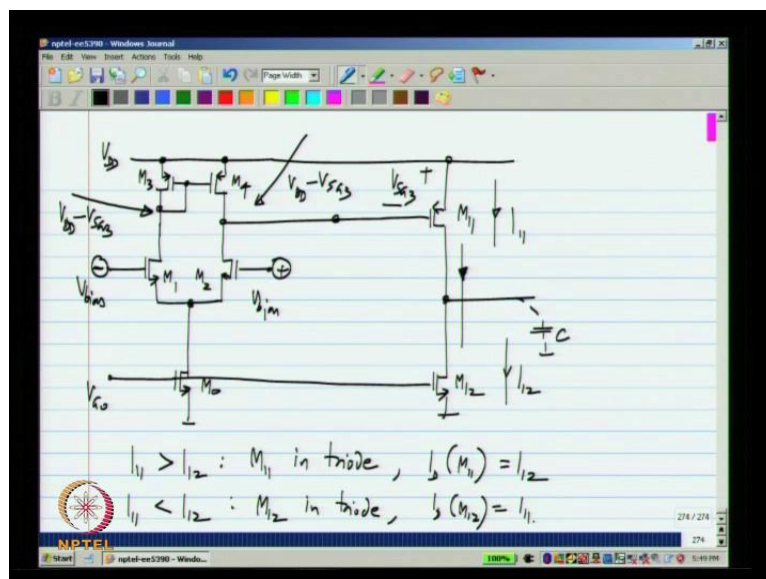 nptel-ee5390 - Windows Journal
File Edit View Insert Actions Tools Help
Page Width
B I
V_DD
M3 M4 V_DD-V_SG3 V_SG3 +
V_DD-V_SG3
M11 I11
- M1 M2 +
V_bias V_bias
C
M0 M12 I12
V_G0
I11 > I12 : M11 in triode, I_D (M11) = I12
I11 < I12 : M12 in triode, I_D (M12) = I11.
NPTEL
274 / 274
274
Start nptel-ee5390 - Windo... 100% 5:49 PM